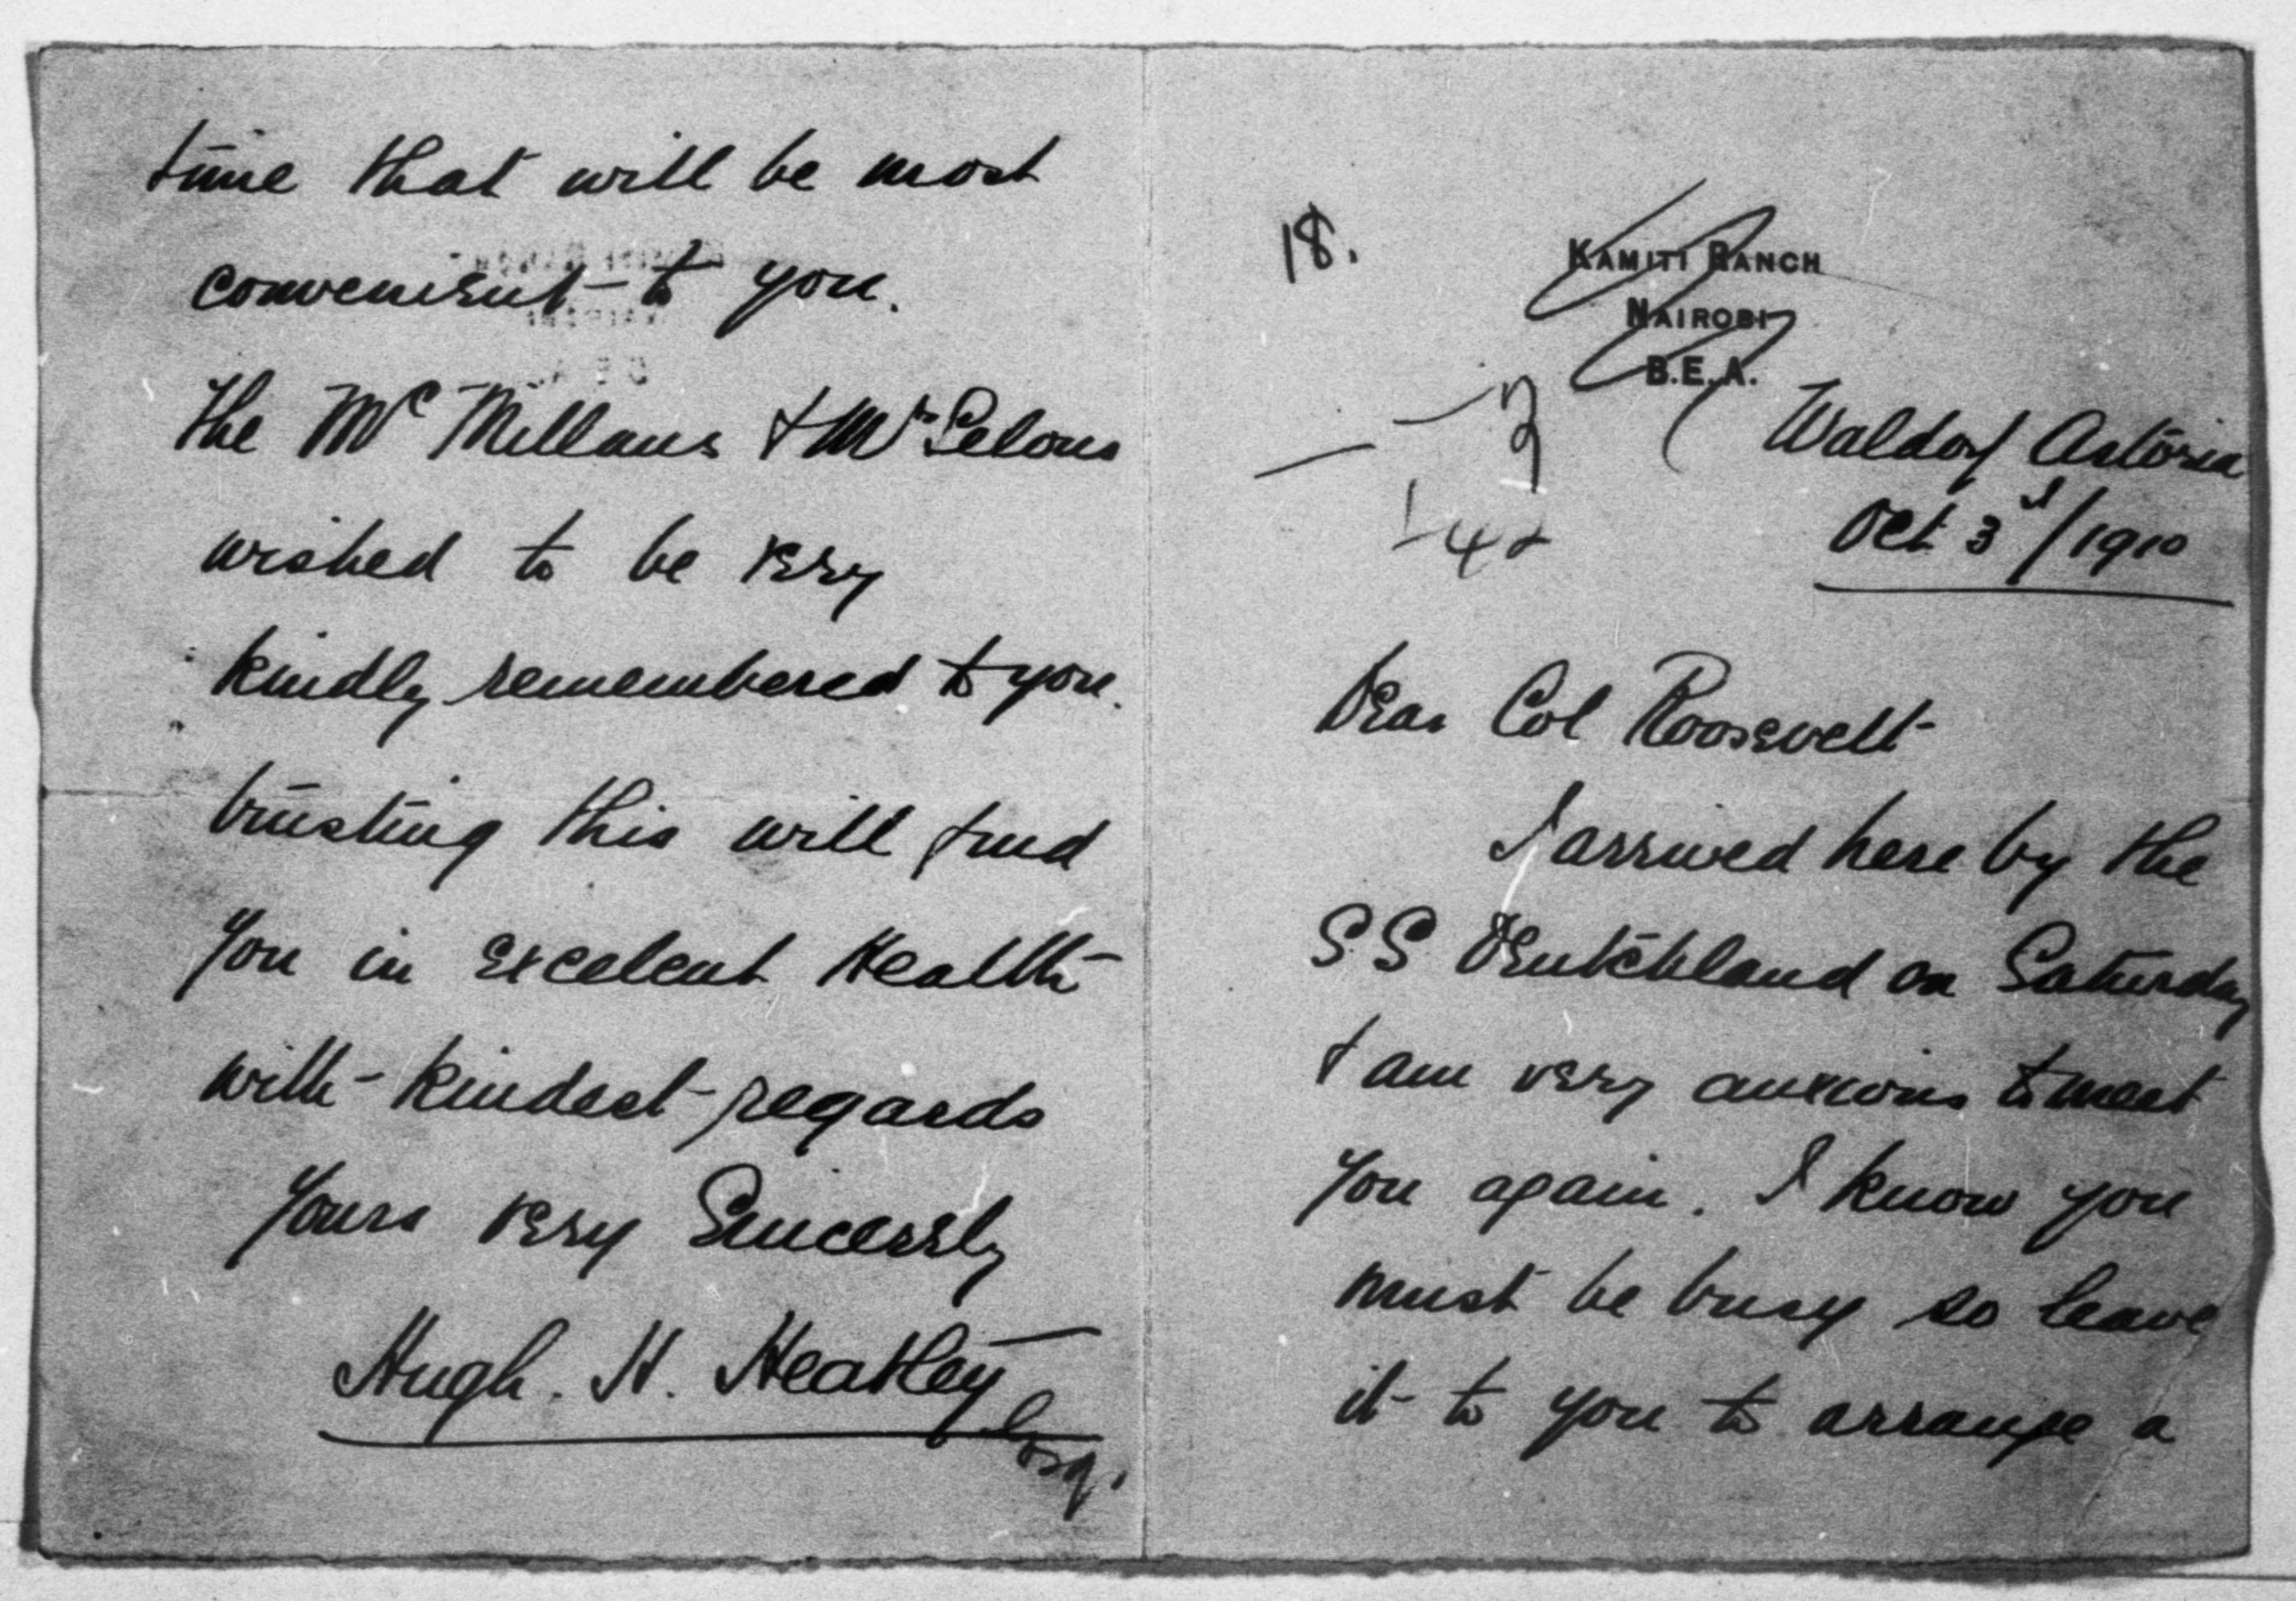 18.
KAMITI RANCH
NAIROBI
B.E.A.
Waldorf Astoria
Oct 3d/1910
Dear Col Roosevelt
I arrived here by the
S.S. Deutchland on Saturday
& am very anxious to meet
you again. I know you
must be busy so leave
it to you to arrange a
time that will be most
convenient to you.
The McMillans & Mr Selous
wished to be very
kindly remembered to you.
trusting this will find
you in excelent Health
with kindest regards
Yours very Sincerely
Hugh. H. Heatley
Esq.